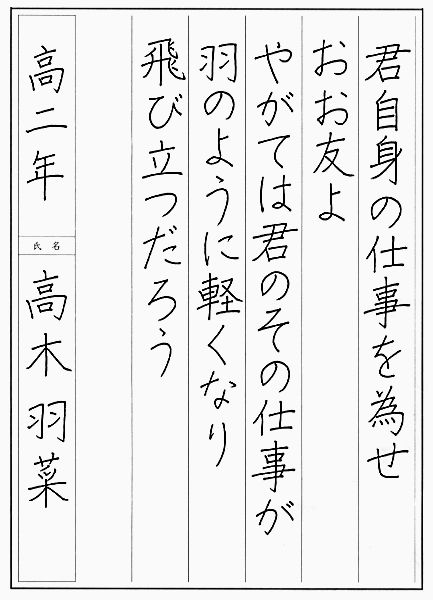 君自身の仕事を為せ
おお友よ
やがては君のその仕事が
羽のように軽くなり
飛び立つだろう
高二年
氏名
高木羽菜